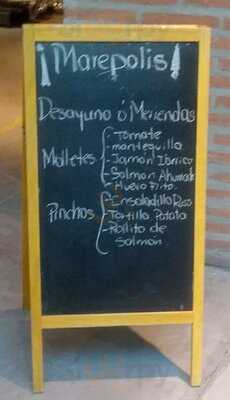 ¡Marepolis!
Desayuno ó Meriendas
Molletes
- Tomate
- mantequilla
- Jamón Ibérico
- Salmon Ahumado
- Huevo Frito.
Pinchos
- Ensaladilla Rusa
- Tortilla Patata
- Rollito de
Salmón